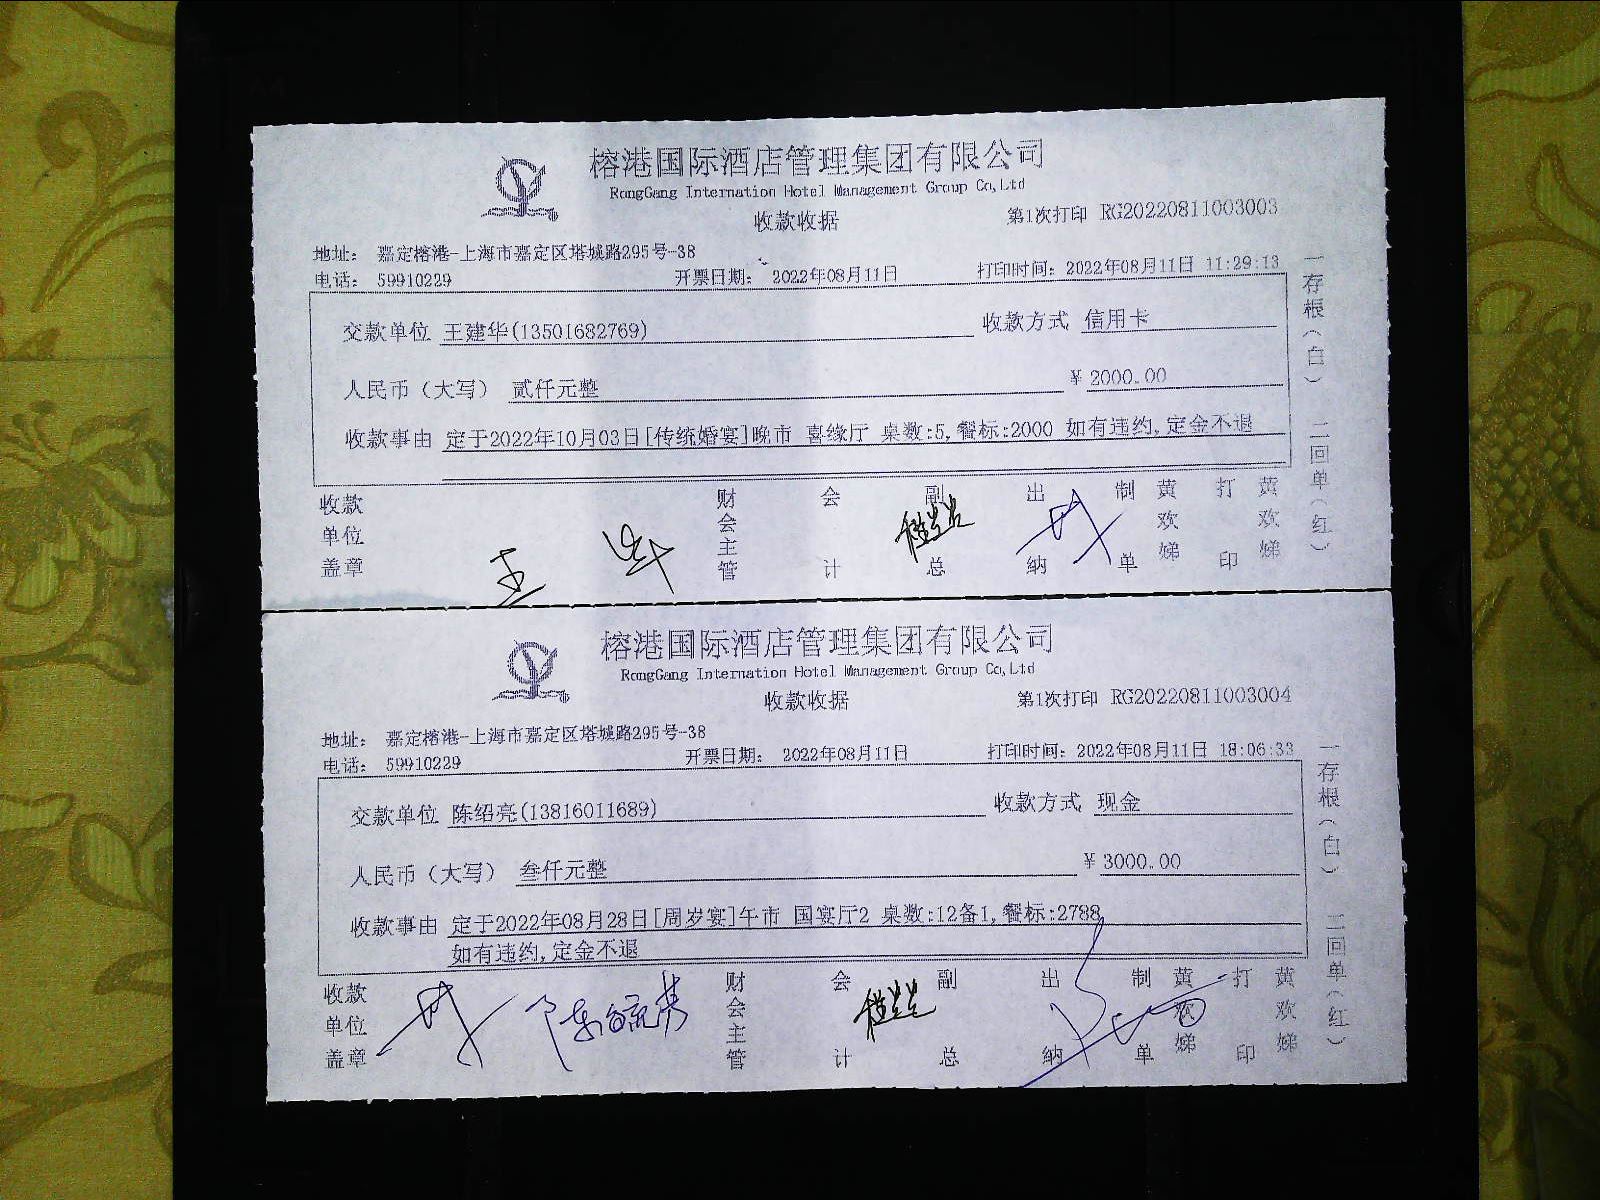 榕港国际酒店管理集团有限公司
RongGang Internation Hotel Management Group Co,Ltd
收款收据
第1次打印 RG20220811003003
地址: 嘉定榕港-上海市嘉定区塔城路295号-38
电话: 59910229 开票日期: 2022年08月11日 打印时间: 2022年08月11日 11:29:13
交款单位 王建华(13501682769) 收款方式 信用卡
人民币(大写) 贰仟元整 ¥ 2000.00
收款事由 定于2022年10月03日[传统婚宴]晚市 喜缘厅 桌数:5,餐标:2000 如有违约,定金不退
收款单位盖章 财会主管 会计 副总 出纳 制单 黄欢娣 打印 黄欢娣
王
一存根(白) 二回单(红)
榕港国际酒店管理集团有限公司
RongGang Internation Hotel Management Group Co,Ltd
收款收据
第1次打印 RG20220811003004
地址: 嘉定榕港-上海市嘉定区塔城路295号-38
电话: 59910229 开票日期: 2022年08月11日 打印时间: 2022年08月11日 18:06:33
交款单位 陈绍亮(13816011689) 收款方式 现金
人民币(大写) 叁仟元整 ¥ 3000.00
收款事由 定于2022年08月28日[周岁宴]午市 国宴厅2 桌数:12备1,餐标:2788
如有违约,定金不退
收款单位盖章 财会主管 会计 副总 出纳 制单 黄欢娣 打印 黄欢娣
一存根(白) 二回单(红)